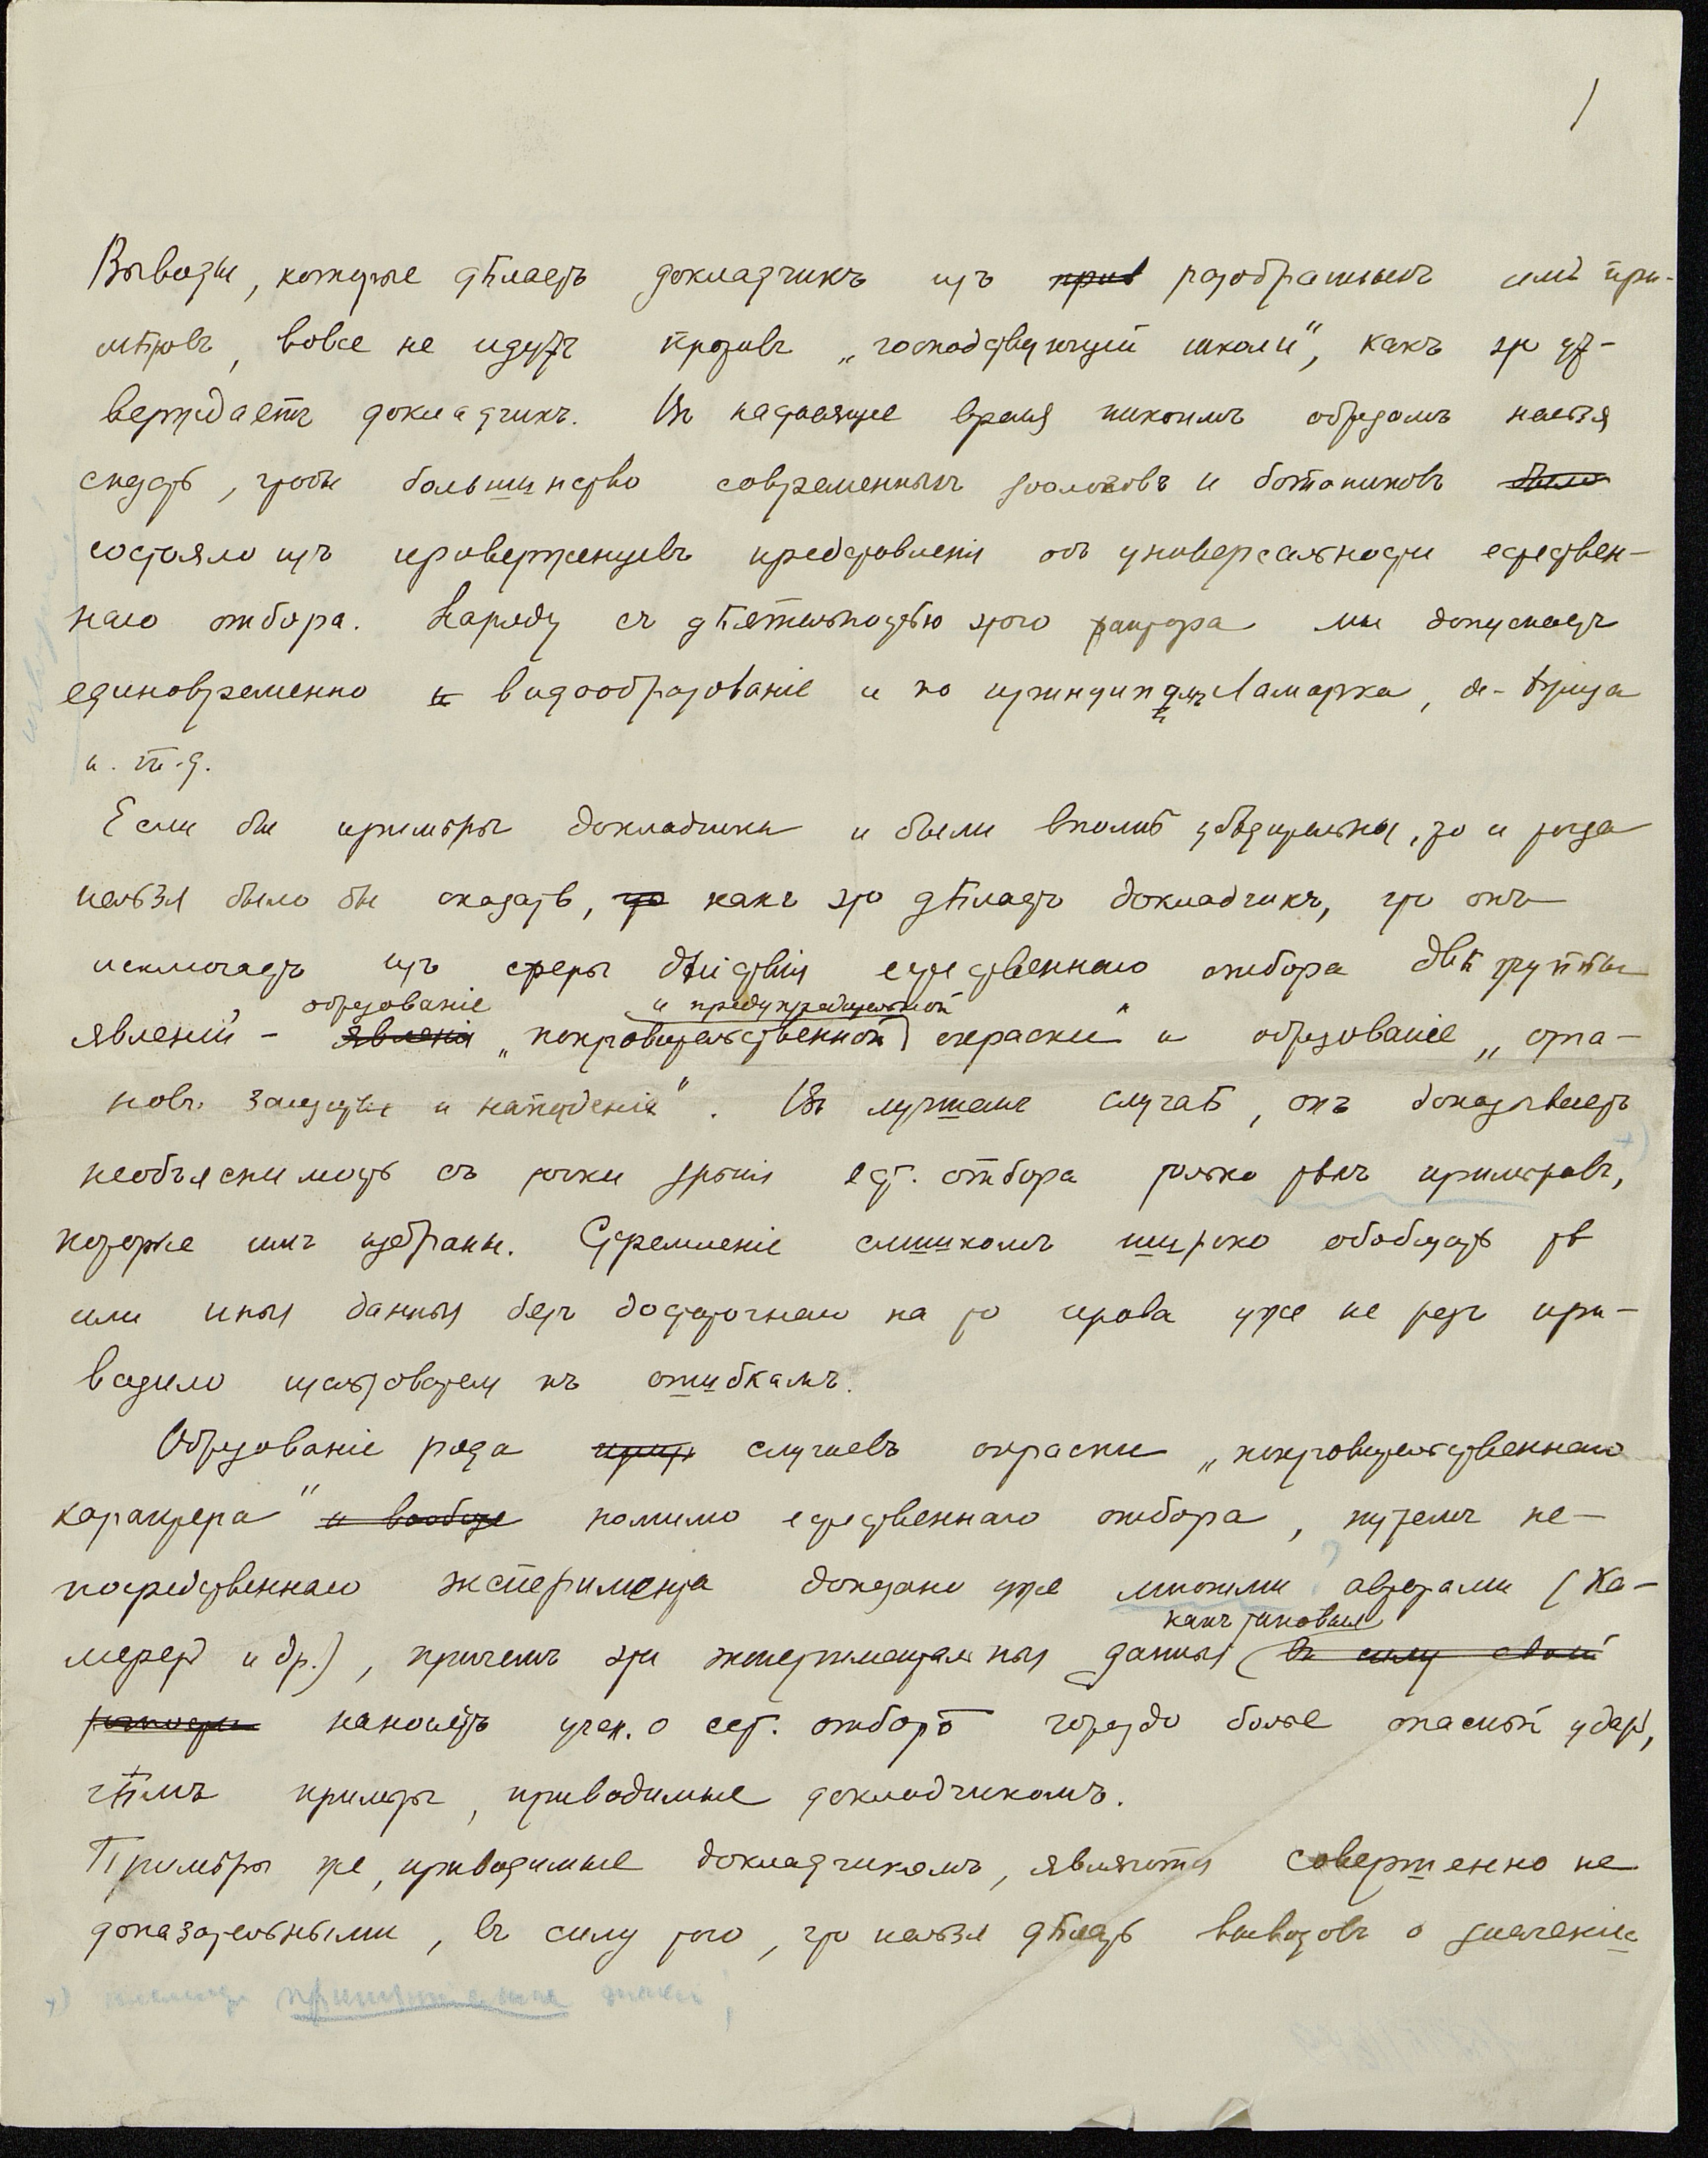 1
Выводы, которые дѣлаетъ докладчикъ изъ ~~прив~~ разобранныхъ имъ при-
мѣровъ, вовсе не идутъ противъ „господствующей школы“, какъ это ут-
верждаетъ докладчикъ. Въ настоящее время никоимъ образомъ нельзя
сказать, чтобы большинство современныхъ зоологовъ и ботаниковъ ~~было~~
состояло изъ приверженцевъ представленія объ универсальности естествен-
наго отбора. Наряду съ дѣятельностью этого фактора мы допускаемъ
единовременно ~~и~~ видообразованіе и по принципамъ Ламарка, де-Фриза
и. т. д.
Если бы примѣры докладчика и были вполнѣ убѣдительны, то и тогда
нельзя было бы сказать, ~~что~~ какъ это дѣлаетъ докладчикъ, что онъ
исключаетъ изъ сферы дѣйствія естественнаго отбора двѣ группы
образованіе и предупредительной
явленій - ~~явленія~~ „покровительственной окраски“ и образованіе „орга-
новъ защиты и нападенія“. Въ лучшемъ случаѣ, онъ доказываетъ
необъяснимость съ точки зрѣнія ест. отбора только тѣхъ примѣровъ, +)
которые имъ избраны. Стремленіе слишкомъ широко обобщать тѣ
или иныя данныя безъ достаточнаго на то права уже не разъ при-
водило изслѣдователей къ ошибкамъ.
Образованіе ряда ~~прим~~ случаевъ окраски „покровительственнаго
характера“ ~~и вообще~~ помимо естественнаго отбора, путемъ не-
посредственнаго эксперимента доказано уже многими ? авторами (Ка-
какъ таковыя
мереръ и др.), причемъ эти экспериментальныя данныя ~~въ силу своей~~
наносятъ учен. о ест. отборѣ гораздо болѣе опасный ударъ,
чѣмъ примѣры, приводимые докладчикомъ.
Примѣры же, приводимые докладчикомъ, являются совершенно не
доказательными, въ силу того, что нельзя дѣлать выводовъ о значеніи
+)